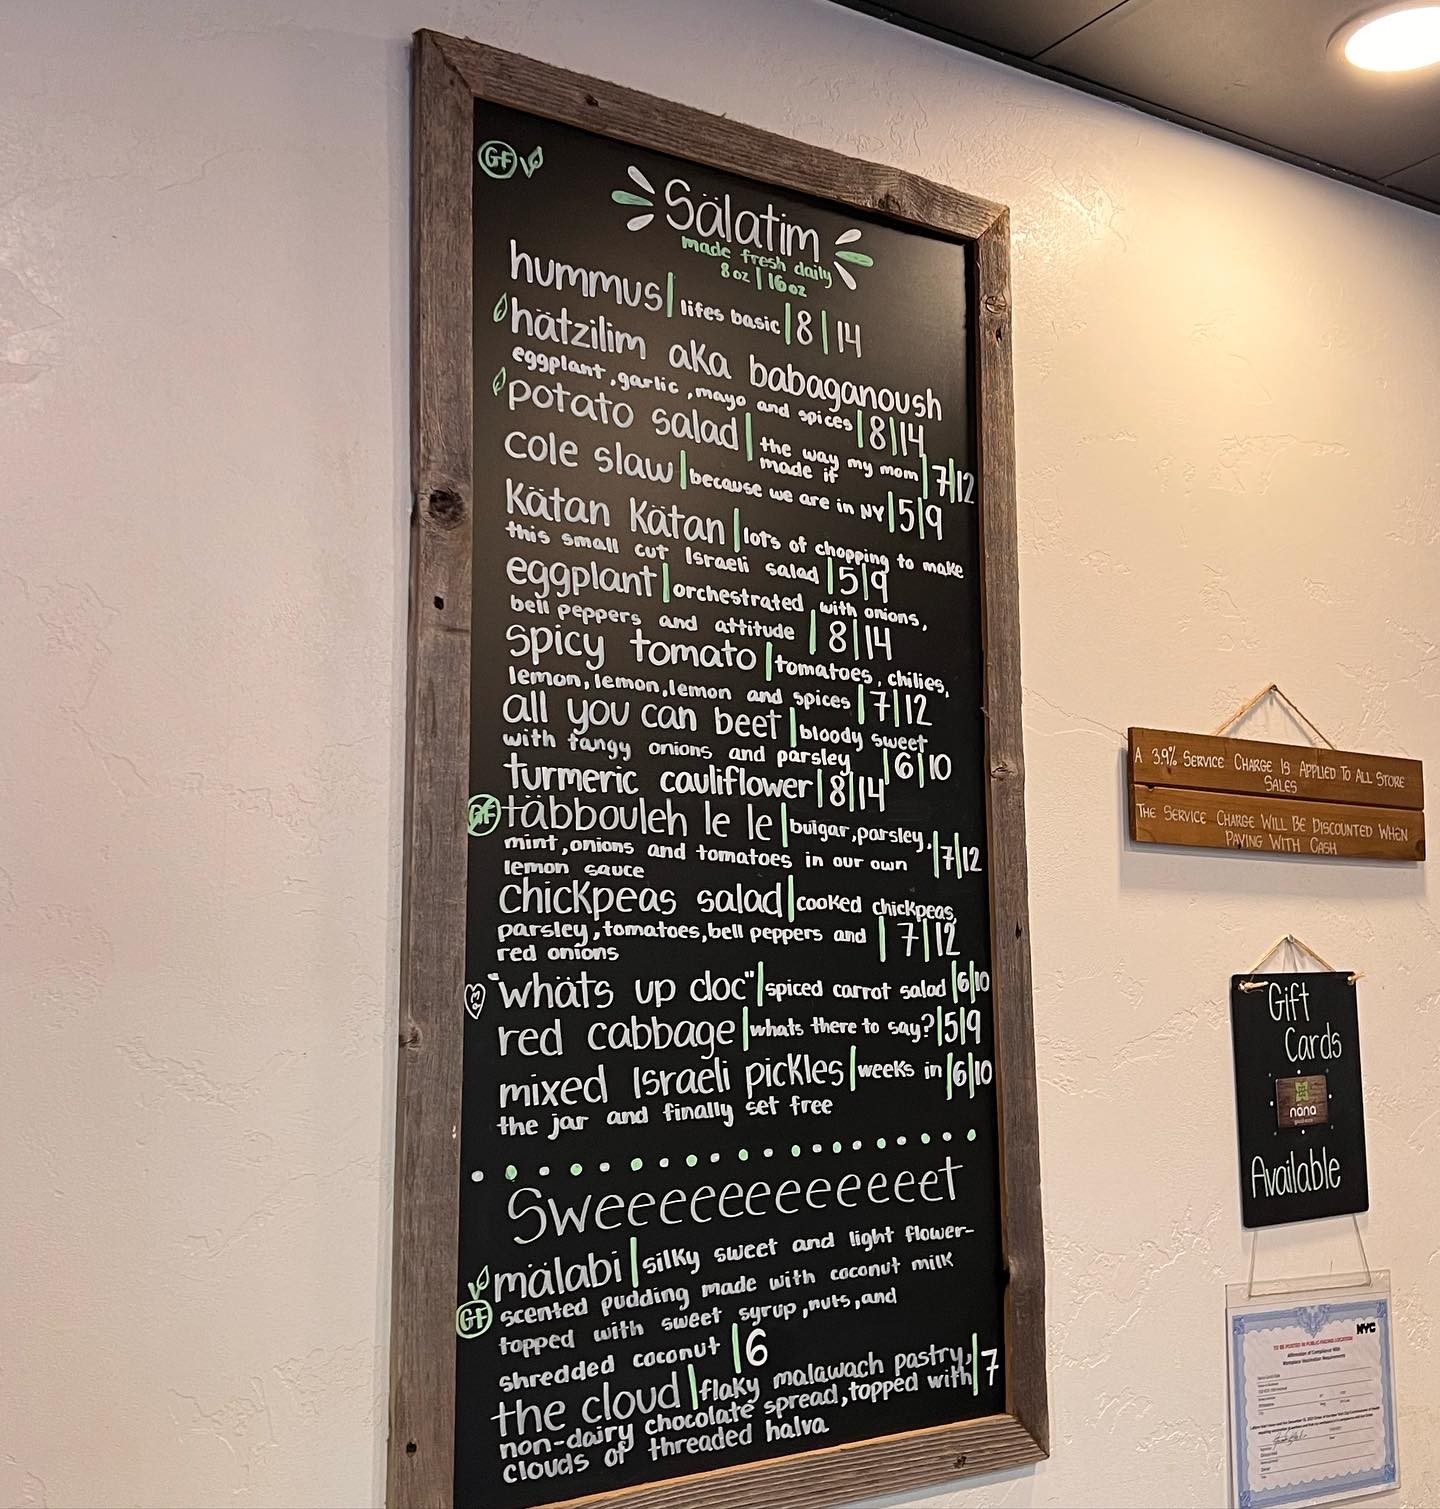 GF
Sälatim
made fresh daily
8 oz | 16 oz
hummus | lifes basic | 8 | 14
hätzilim aka babaganoush
eggplant, garlic, mayo and spices | 8 | 14
potato salad | the way my mom | 7 | 12
made it
cole slaw | because we are in NY | 5 | 9
Kätan Kätan | lots of chopping to make
this small cut Israeli salad | 5 | 9
eggplant | orchestrated with onions,
bell peppers and attitude | 8 | 14
spicy tomato | tomatoes, chilies,
lemon, lemon, lemon and spices | 7 | 12
all you can beet | bloody sweet
with tangy onions and parsley | 6 | 10
turmeric cauliflower | 8 | 14
GF täbbouleh le le | bulgar, parsley, | 7 | 12
mint, onions and tomatoes in our own
lemon sauce
chickpeas salad | cooked chickpeas,
parsley, tomatoes, bell peppers and | 7 | 12
red onions
"whäts up doc" | spiced carrot salad | 6 | 10
red cabbage | whats there to say? | 5 | 9
mixed Israeli pickles | weeks in | 6 | 10
the jar and finally set free
Sweeeeeeeeeeeet
mälabi | silky sweet and light flower-
GF scented pudding made with coconut milk
topped with sweet syrup, nuts, and
shredded coconut | 6
the cloud | flaky malawach pastry, | 7
non-dairy chocolate spread, topped with
clouds of threaded halva
A 3.9% Service Charge Is Applied To All Store
Sales
The Service Charge Will Be Discounted When
Paying With Cash
Gift
Cards
nāna
Available
NYC
TO BE POSTED IN PUBLIC-FACING LOCATION
Affirmation of Compliance With
Workplace Vaccination Requirements